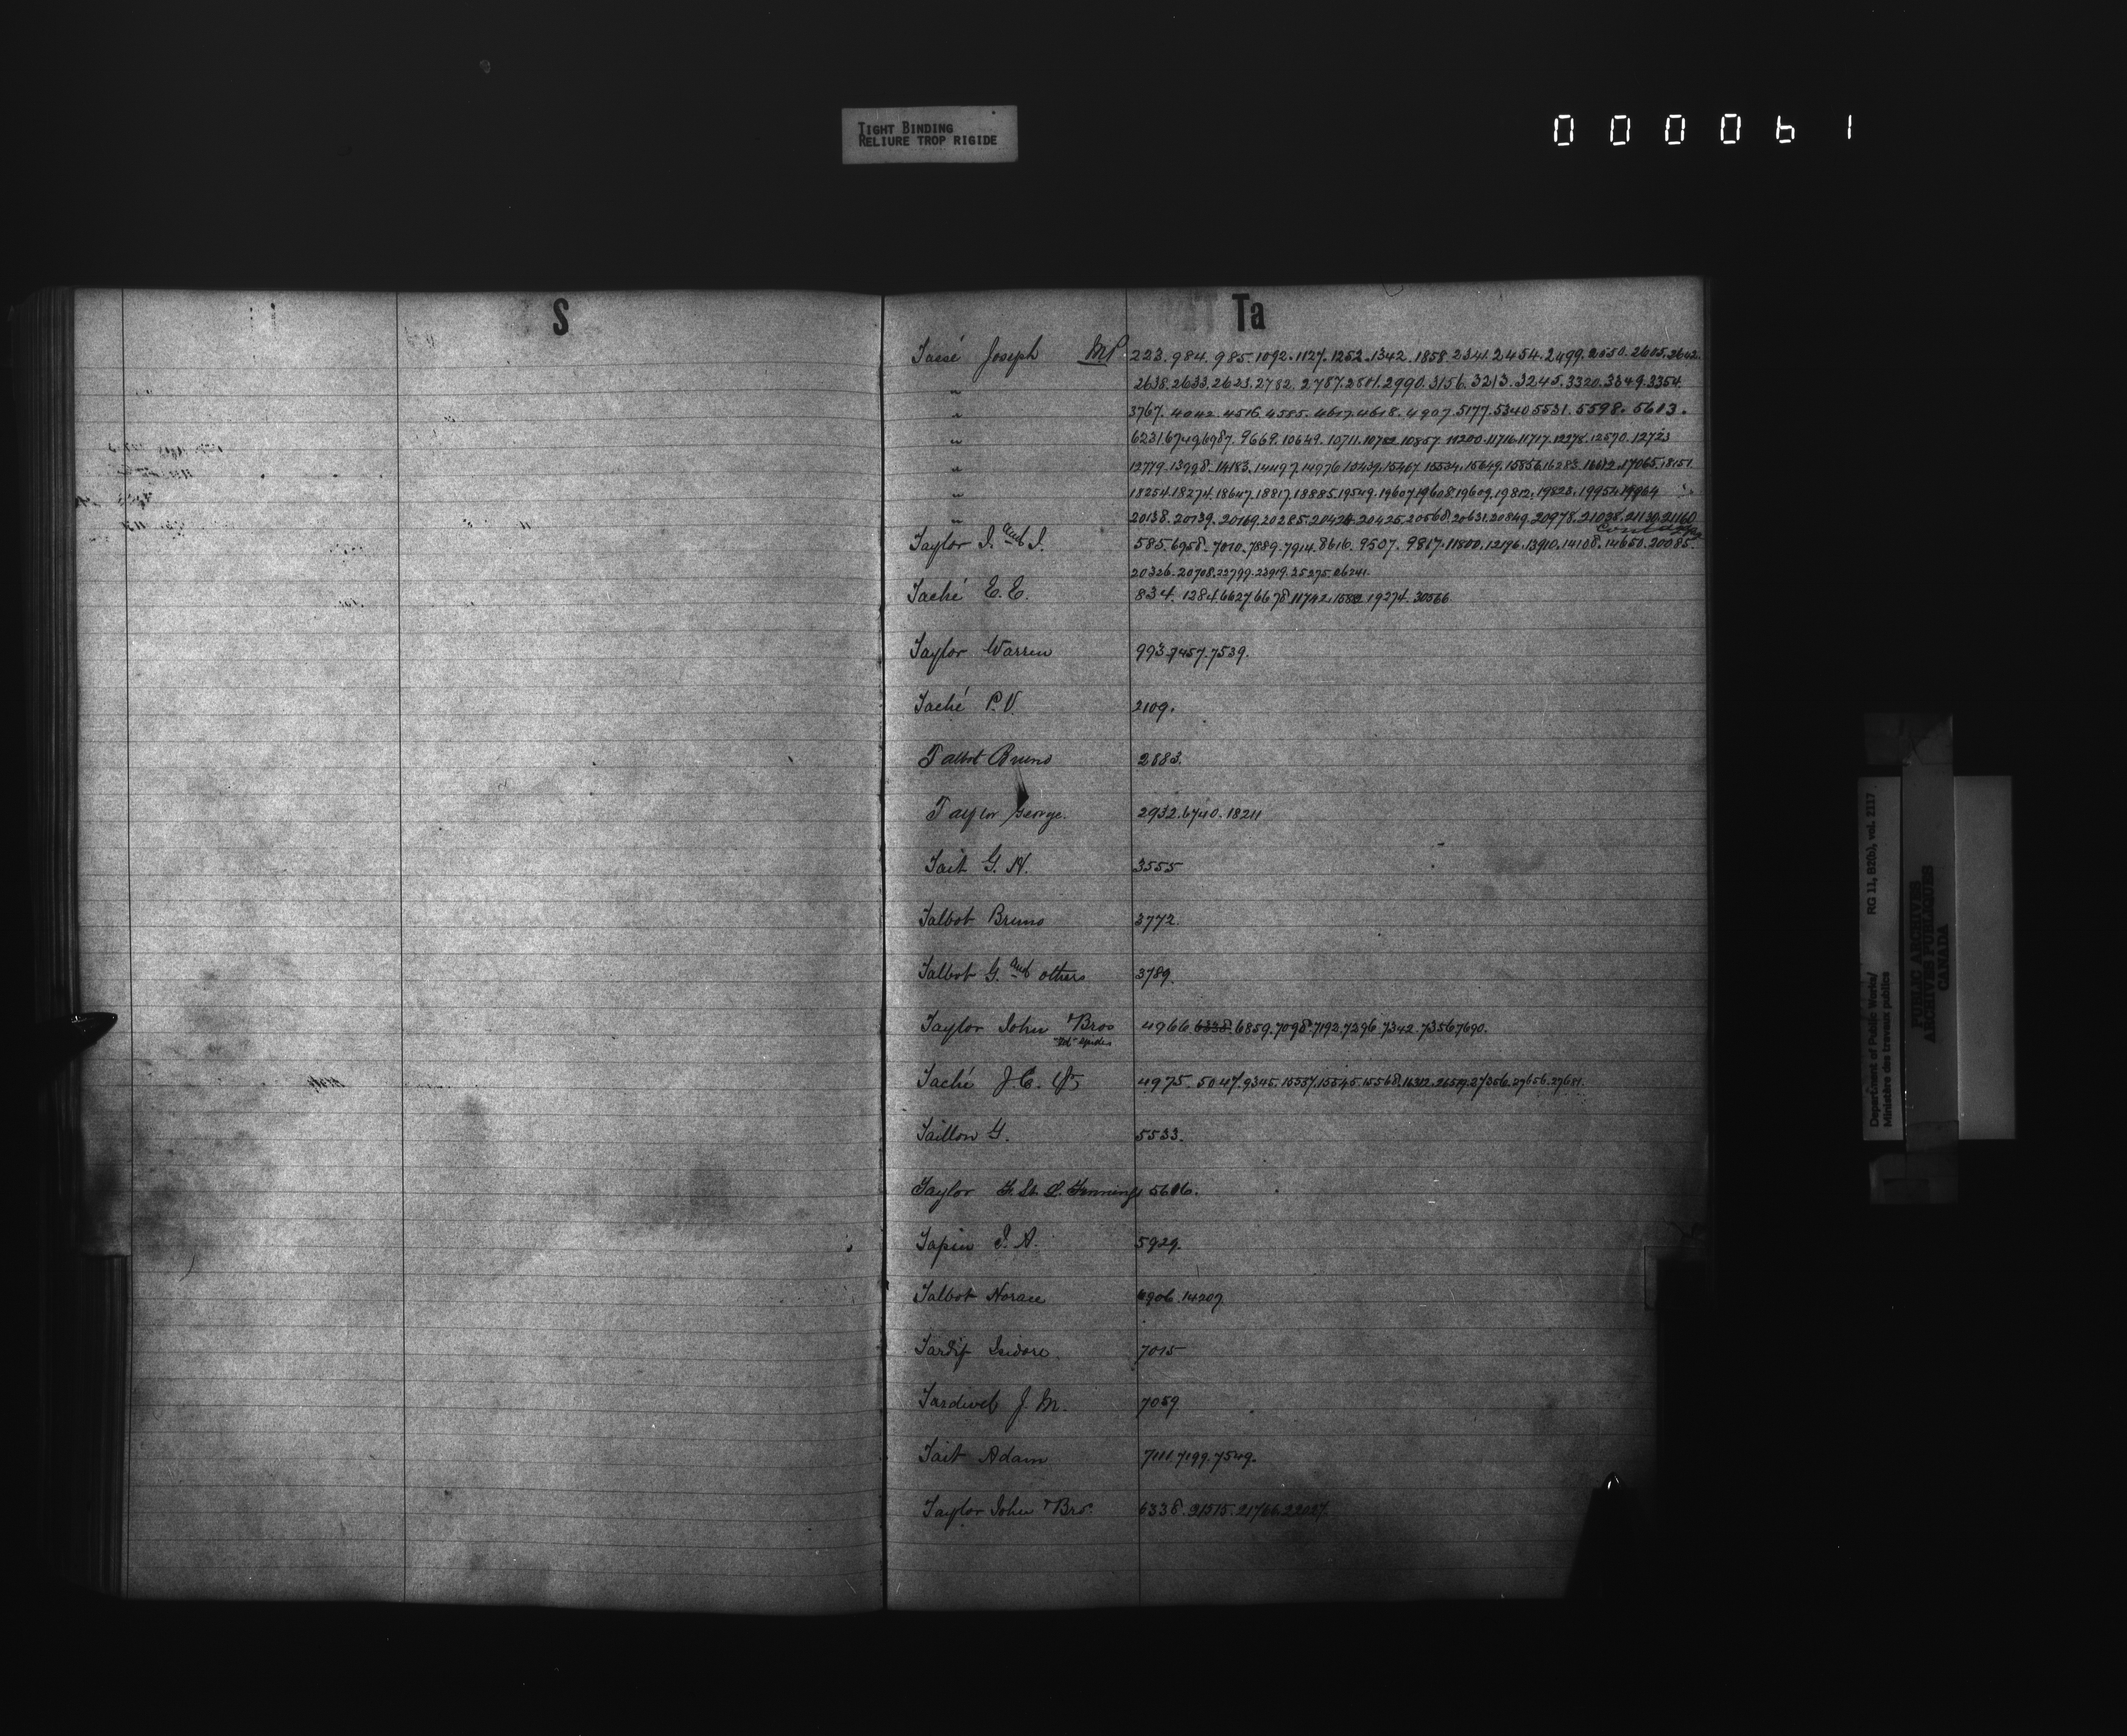 TIGHT BINDING
RELIURE TROP RIGIDE
000061
S
Ta
Tassé Joseph MP. 223. 984. 985. 1092. 1127. 1252. 1342. 1858. 2341. 2454. 2499. 2550. 2605. 2642.
" 2638. 2633. 2623. 2782. 2787. 2801. 2990. 3156. 3213. 3245. 3320. 3349. 3354
" 3767. 4042. 4516. 4585. 4617. 4618. 4907. 5177. 5340 5531. 5598. 5613.
" 6231 6749. 6987. 9669. 10649. 10711. 10752. 10857. 11200. 11716. 11717. 12278. 12570. 12723
" 12779. 13998. 14183. 14497. 14976 15439. 15467. 15534. 15649. 15856. 16283. 16612. 17065. 18151
" 18254. 18274. 18647. 18817. 18885. 19549. 19607. 19608. 19609. 19812. 19823. 19954. 19964
" 20138. 20139. 20169. 20285. 20424. 20425. 20568. 20631. 20849. 20978. 21038. 21130. 21160
Taylor J. and J. 585. 6958. 7010. 7889. 7914. 8616. 9507. 9817. 11800. 12176. 13910. 14108. 14650. 20085.
20326. 20708. 22799. 23919. 25275. 26241.
Taché E. E. 834. 1284. 6627. 6678. 11742. 1582 19274. 30566
Taylor Warren 993. 7457. 7539.
Taché P. V. 2109.
Talbot Bruno 2883.
Taylor George. 2932. 6740. 18211
Tait G. H. 3555
Talbot Bruno 3772.
Talbot G. and others 3789.
Taylor John & Bros 4966 6338. 6859. 7098. 7192. 7296. 7342. 7356 7690.
Taché J. C. 4975. 5047. 9345. 15557. 15545. 15568. 16312. 26519. 27356. 27656. 27681.
Taillon G. 5533.
Taylor Jennings 5606.
Tapin J. A. 5929.
Talbot Horace 6906. 14207
Tardif Isidore. 7015
Tardivel J. M. 7059
Tait Adam 7111. 7199. 7549.
Taylor John & Bro. 6338. 21515. 21766. 22027.
Department of Public Works/ RG 11, B2(b), vol. 2117
Ministère des travaux publics
PUBLIC ARCHIVES
ARCHIVES PUBLIQUES
CANADA